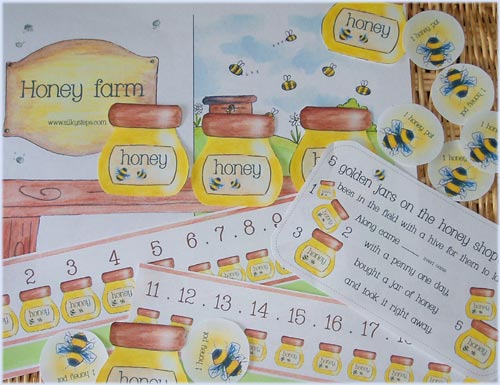 honey
1 honey pot
Honey farm
www.silkysteps.com
honey
honey
honey
1 honey pot
1 honey pot
1 honey pot
5 golden jars on the honey shop
1
bees in the field with a hive for them to
2
Along came
3
with a penny one day,
bought a jar of honey
and took it right away
5
2 3 4 5 6 . 7 . 8 . 9 .
11 . 12 . 13 . 14 . 15 . 16 . 17 . 18
honey
1 honey pot
1 honey pot